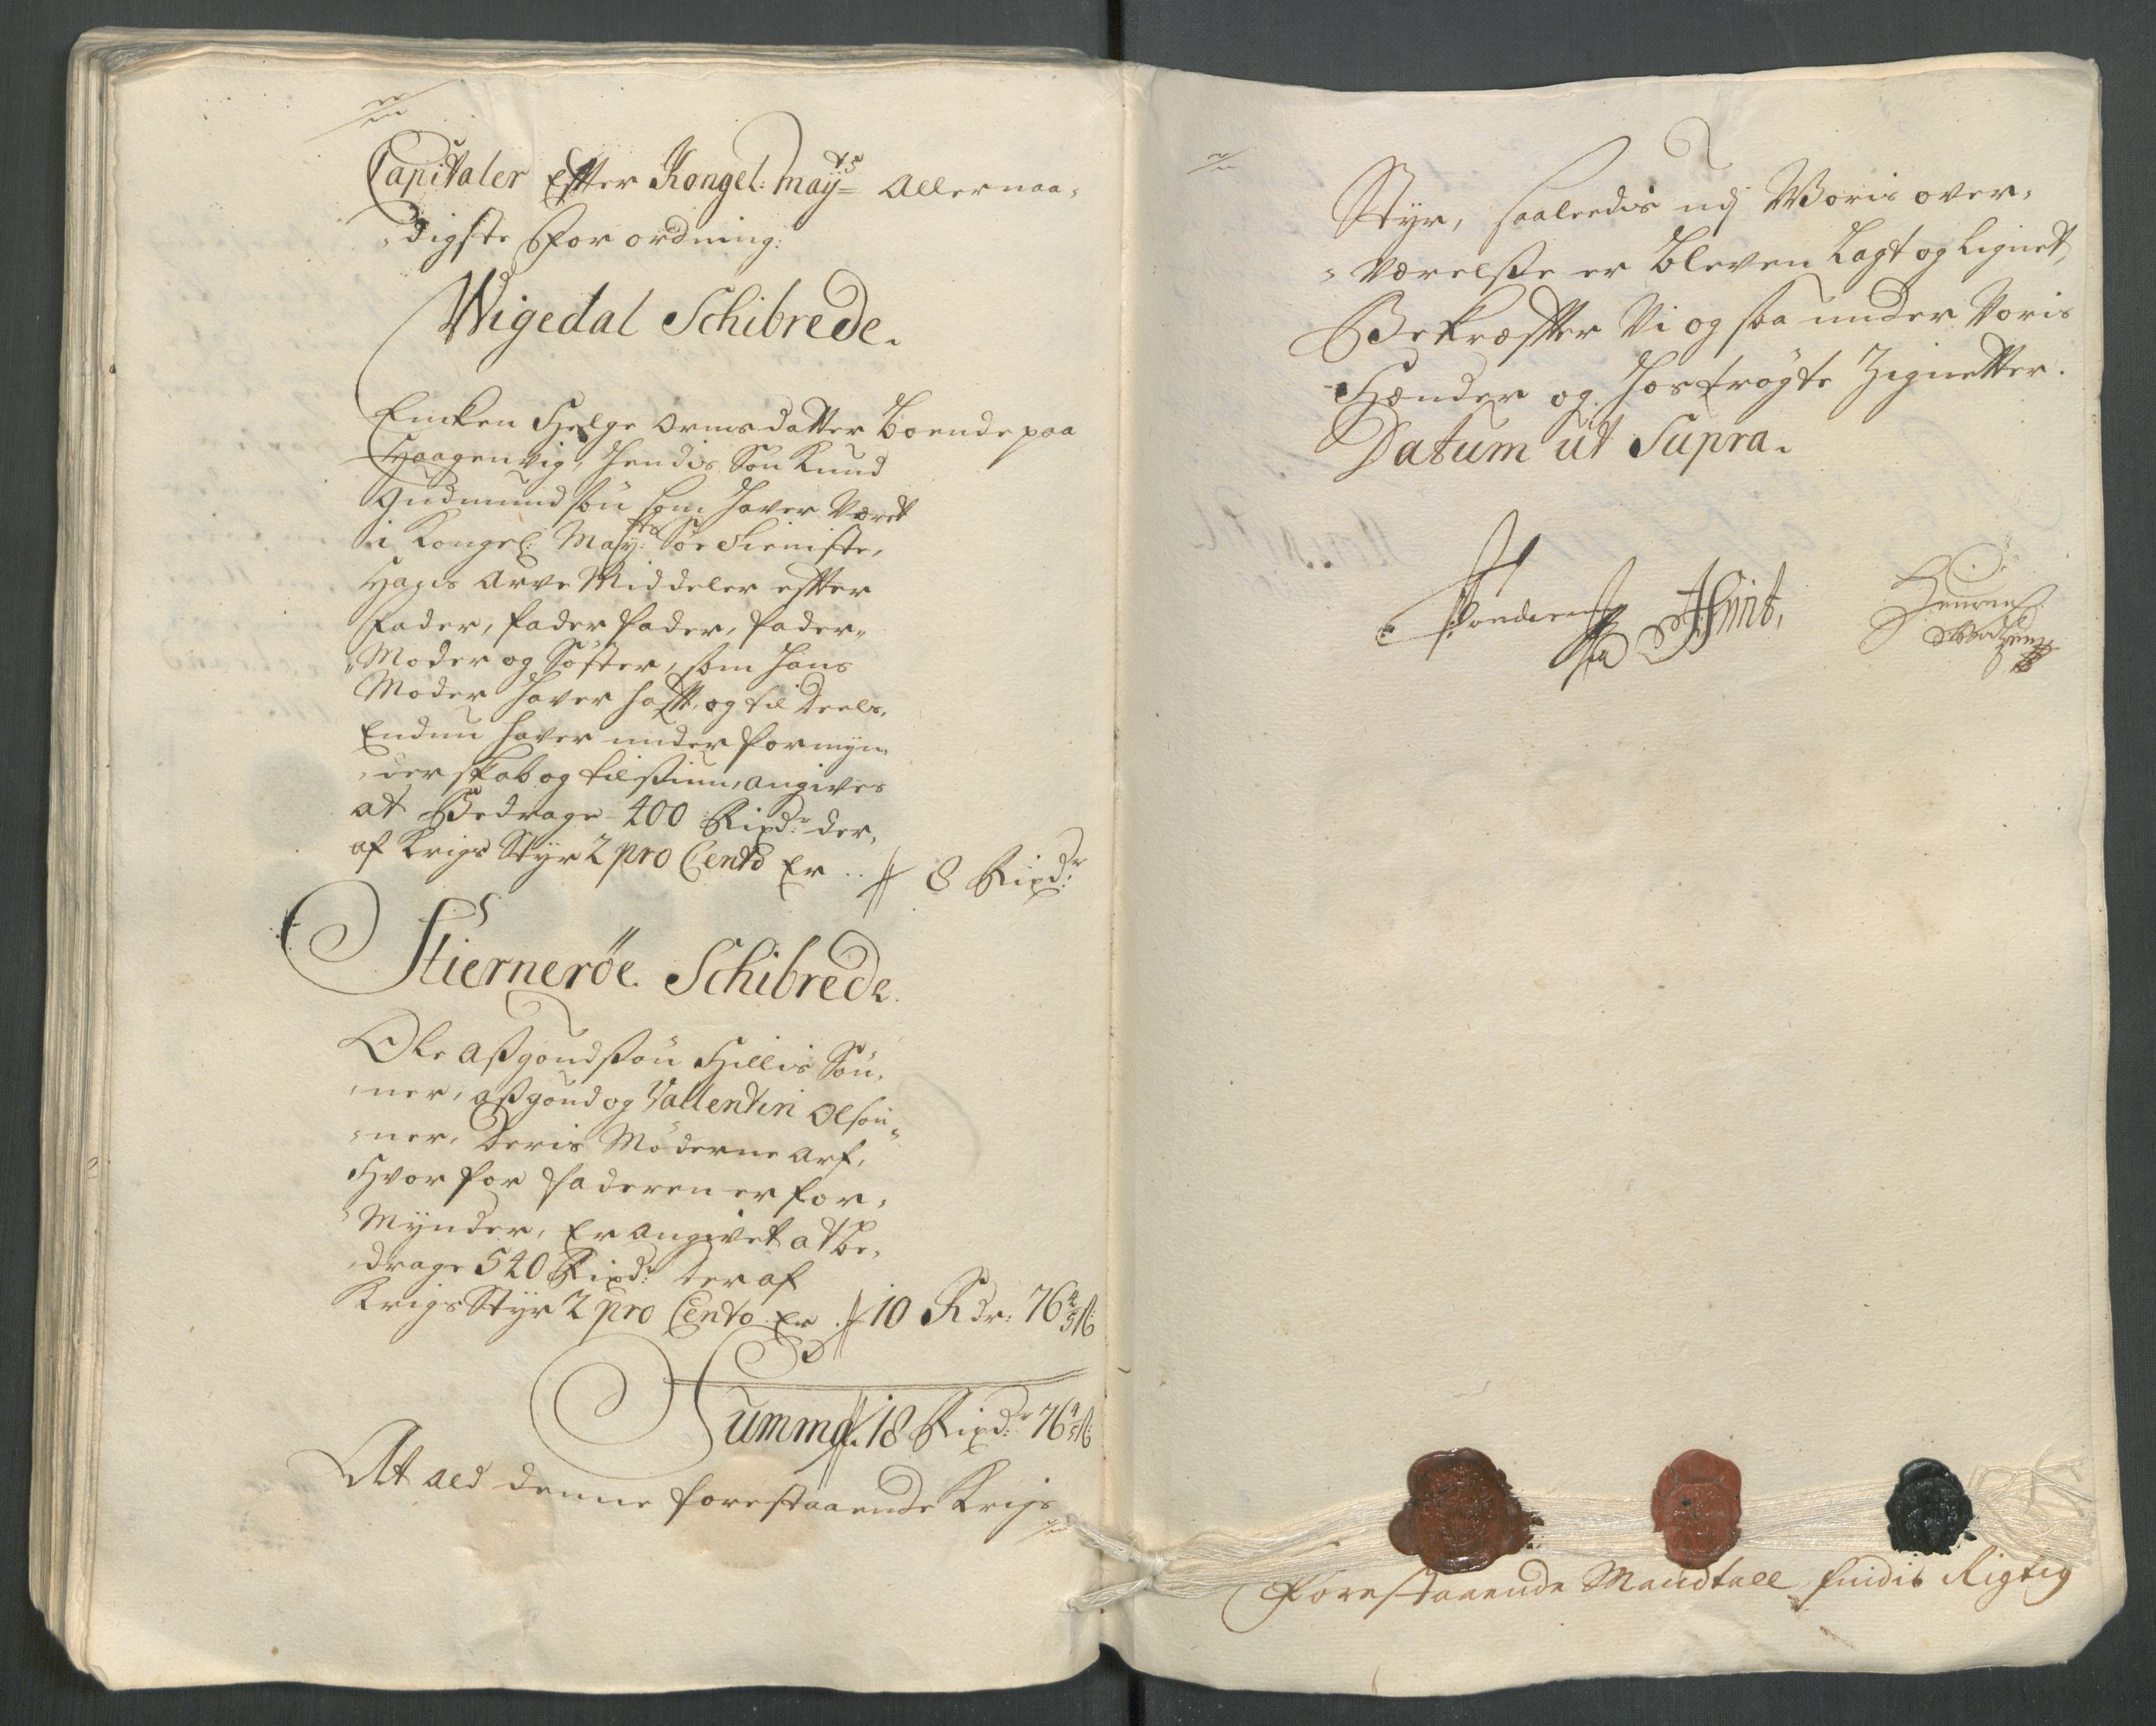 Capitaler Efter Kongel: Mayts Allernaa,
,digste Forordning:
Wigedal Schibrede.
Encken Helge Ormsdatter boende paa
Haagenvig, hendis Søn Knud
Gudmundsøn som haver Været
i Kongel: Mayts Søe Tieniste,
Hans Arve Middeler efter
Fader, Fader Fader, Fader„
„Moder og Søster, som hans
Moder haver hafft, og til deels,
Endnu haver under formyn„
„derskab og tilsiun, angives
at Bedrage 400 Rixdr der,
af Krigs Styr 2 pro Cento Er .. 8 Rixdr
Stiernerøe Schibrede.
Ole Asgoudsøn Hillis Søn,
,ner, Asgoud og Vallentin Olsøn„
„ner, deris Møderne Arf,
Hvor for Faderen er for,
„Mynder, Er angivet at be,
,drage 540 Rixdr der af
Krigs Styr 2 pro Cento Er 10 Rdr: 76 4/5 ß
Summa 18 Rixdr 76 4/5 ß
At ald denne forestaaende Krigs
Styr, saaledis udj Woris over,
„Værelsse er bleven Lagt og Lignet,
Bekræfter Vi og saa under Voris
Hænder og hostrøgte Zignetter.
Datum ut Supra.
Forestaaende Mandtall findis Rigtig